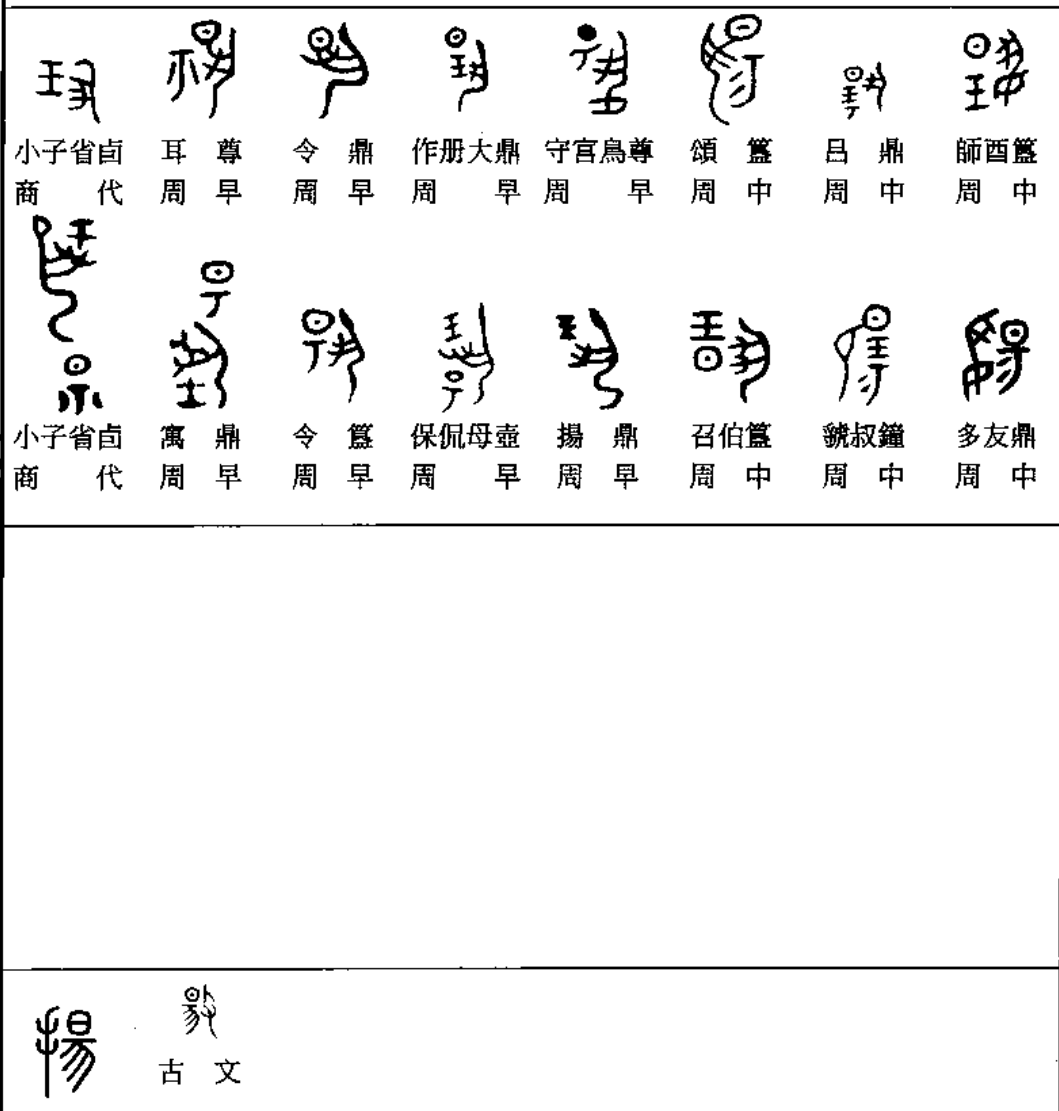 小子省卣 耳尊 令鼎 作册大鼎 守宫鳥尊 頌簋 吕鼎 師酉簋
商代 周早 周早 周早 周早 周中 周中 周中
小子省卣 寓鼎 令簋 保侃母壺 揚鼎 召伯簋 虢叔鐘 多友鼎
商代 周早 周早 周早 周早 周中 周中 周中
揚
古文